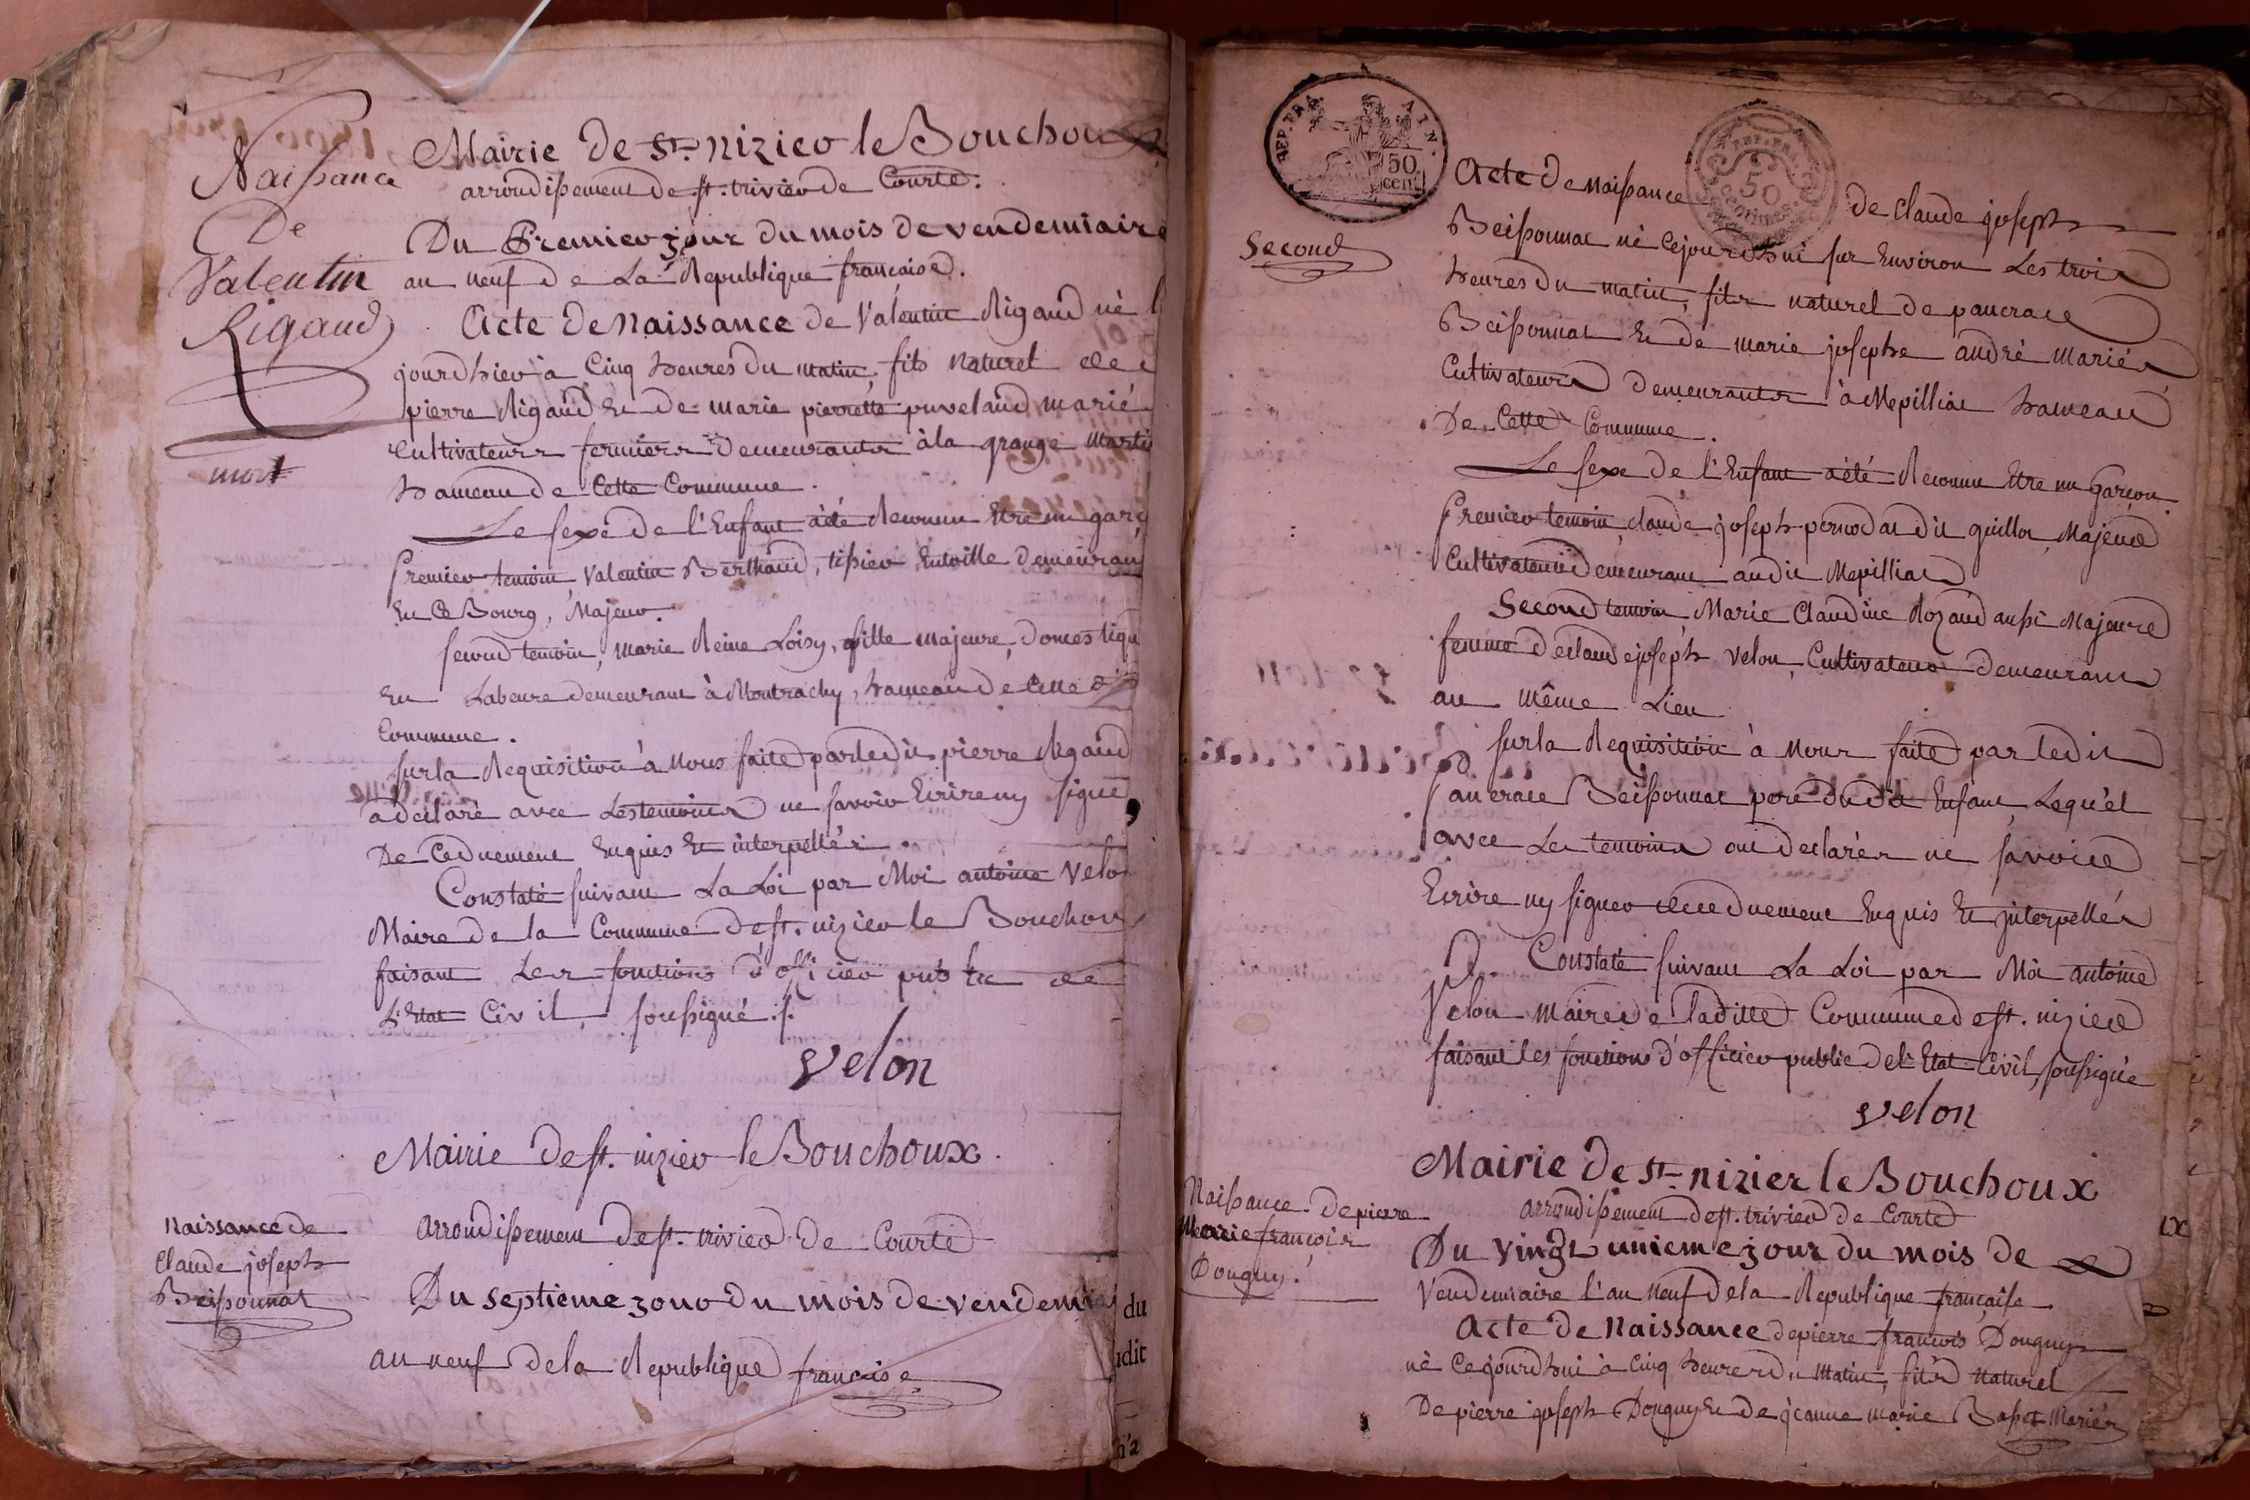 Naissance
De
Valentin
Rigaud
mort
Mairie de St. nizier le Bouchoux
arrondissement de st. trivier de Courte.
Du Premier jour du mois de vendemiaire
an neuf de La Republique francaise.
Acte de Naissance de Valentin Rigaud né
jourdhier à Cinq heures du matin, fils Naturel de
pierre Rigaud Et de marie pierrette puvelaud marié
Cultivateurs fermiers demeurants à la grange
hameau de Cette Commune.
Le sexe de l'Enfant a été Reconnu Etre un garç
Premier temoin Valentin Berthaud, tissier Entoille demeurant
En Ce Bourg, Majeur.
second temoin, marie Reine Loisy, fille majeure, domestiqu
En Labeure demeurant à Montrachy, hameau de Cette
Commune.
sur la Requisition à Nous faite par ledit pierre Rigaud
a déclaré avec Les temoins ne savoir Ecrire ny signé
De Ce duement Enquis Et interpellés.
Constaté suivant La Loi par Moi antoine Velon
Maire de la Commune de st. nizier le Bouchoux
faisant Les fonctions d'officier public de
L'Etat Civil, soussigné ./.
velon
Mairie de st. nizier le Bouchoux.
arrondissement de st. trivier de Courte
Naissance de
Claude joseph
Beissonnat
Du septieme jour du mois de vendemiai
an neuf de la Republique francaise
du
udit
REP. FRA. AIN.
50
cent
50
centimes
Second
Acte de naissance de Claude joseph
Beissonnat né Cejourdhui sur Environ Les trois
heures du matin, fils naturel de pancrace
Beissonnat Et de marie josephe andré mariés
Cultivateurs demeurants à Mepilliat hameau
De Cette Commune.
Le sexe de l'Enfant a été Reconnu Etre un Garcon
Premier temoin, claude joseph pernodat dit guillot, Majeur
Cultivateur demeurant audit Mepilliat
Second temoin Marie Claudine Rozaud aussi Majeure
femme de claude joseph velon, Cultivateur demeurant
au même Lieu
sur la Requisition à Nous faite par ledit
Pancrace Beissonnat pere dudit Enfant, Lequel
avec Les temoins ont declarés ne savoir
Ecrire ny signer de ce duement Enquis Et interpellés
Constaté suivant La Loi par Moi antoine
Velon maire de laditte Commune de st. nizier
faisant les fonctions d'officier public de l'Etat Civil, soussigné
velon
Mairie de St. nizier le Bouchoux
arrondissement de st. trivier de Courte
Naissance de pierre
Marie francois
Donguy.
Du vingt unieme jour du mois de
Vendemiaire l'an neuf de la Republique francaise
Acte de Naissance de pierre francois Donguy
né Cejourdhui à Cinq heures du Matin, fils Naturel
De pierre joseph Donguy Et de jeanne marie Basset Mariés